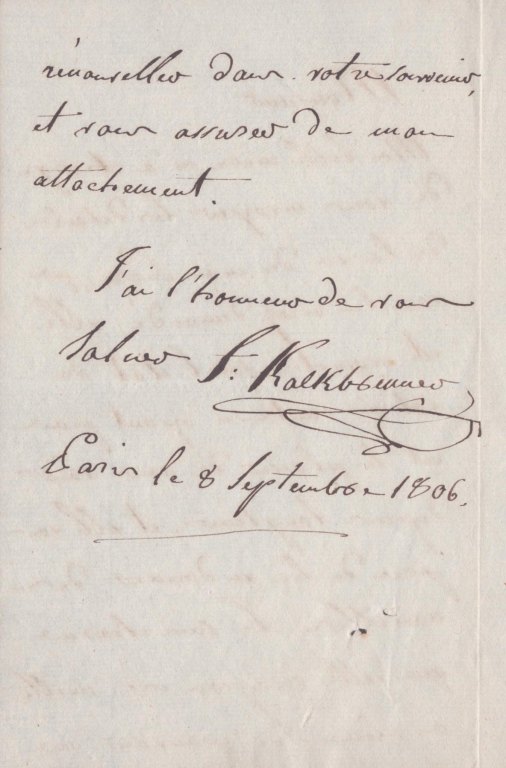 renouveller dans votre souvenir,
et vous assurer de mon
attachement.
J'ai l'honneur de vous
Saluer F: Kalkbrenner
Paris le 8 Septembre 1806.